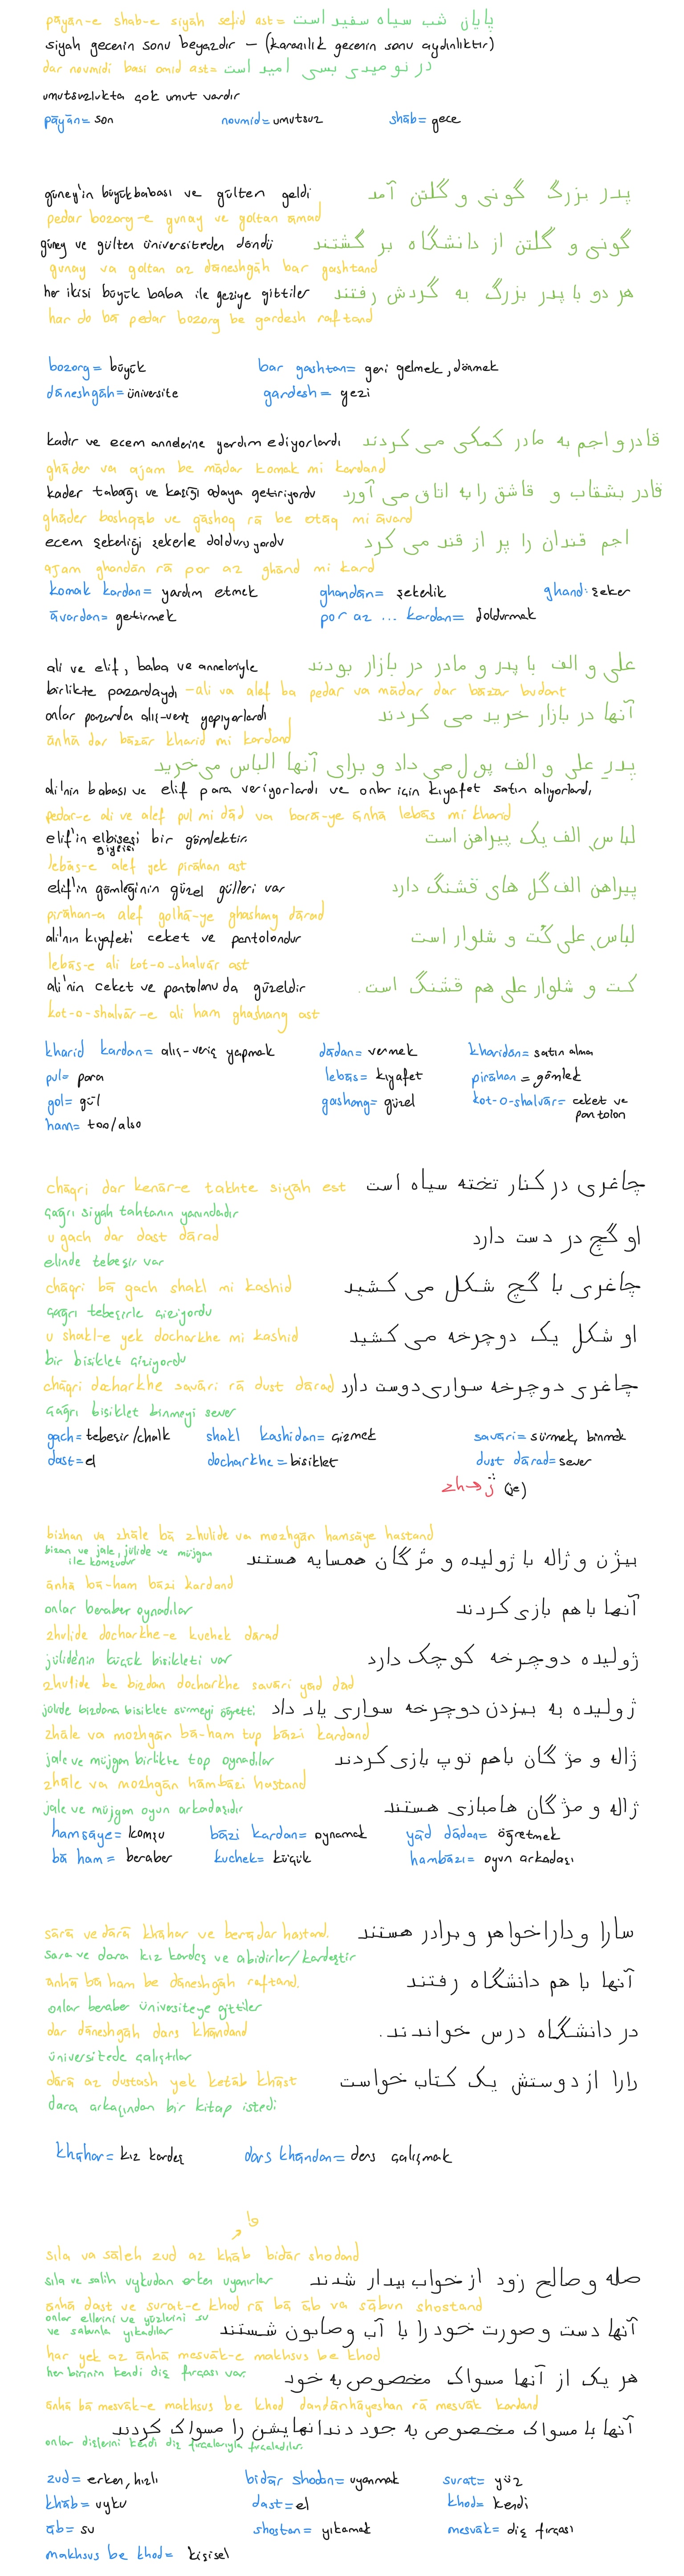 pāyān-e shab-e siyāh sefid ast = پایان شب سیاه سفید است
siyah gecenin sonu beyazdır - (karanlık gecenin sonu aydınlıktır)
dar noumidi basi omid ast = در نومیدی بسی امید است
umutsuzlukta çok umut vardır
pāyān= son noumid= umutsuz shab= gece
güney'in büyükbabası ve gülten geldi پدر بزرگ گونی و گلتن آمد
pedar bozorg-e gunay ve goltan āmad
güney ve gülten üniversiteden döndü گونی و گلتن از دانشگاه بر گشتند
gunay va goltan az dāneshgāh bar gashtand
her ikisi büyük baba ile geziye gittiler هر دو با پدر بزرگ به گردش رفتند
har do bā pedar bozorg be gardesh raftand
bozorg= büyük bar gashtan= geri gelmek, dönmek
dāneshgāh= üniversite gardesh= gezi
kadir ve ecem annelerine yardım ediyorlardı قادر و اجم به مادر کمکی می کردند
ghāder va ajam be mādar komak mi kardand
kader tabağı ve kaşığı odaya getiriyordu قادر بشقاب و قاشق را به اتاق می آورد
ghāder boshqāb ve qāshoq rā be otāq mi āvard
ecem şekerliği şekerle dolduruyordu اجم قندان را پر از قند می کرد
ajam ghandān rā por az ghand mi kard
komak kardan= yardım etmek ghandān= şekerlik ghand: şeker
āvardan= getirmek por az ... kardan= doldurmak
ali ve elif, baba ve anneleriyle علی و الف با پدر و مادر در بازار بودند
birlikte pazardaydı - ali va alef ba pedar va mādar dar bāzār budant
onlar pazarda alış-veriş yapıyorlardı آنها در بازار خرید می کردند
ānhā dar bāzār kharid mi kardand
پدر علی و الف پول می داد و برای آنها الباس می خرید
ali'nin babası ve elif para veriyorlardı ve onlar için kıyafet satın alıyorlardı,
pedar-e ali ve alef pul mi dād va barā-ye ānhā lebās mi kharid
elif'in elbisesi bir gömlektir. لباس الف یک پیراهن است
giysisi
lebās-e alef yek pirāhan ast
elif'in gömleğinin güzel gülleri var پیراهن الف گل های قشنگ دارد
pirāhan-a alef golhā-ye ghashang dārad
ali'nin kıyafeti ceket ve pantolondur لباس علی کت و شلوار است
lebās-e ali kot-o-shalvār ast
ali'nin ceket ve pantolonu da güzeldir کت و شلوار علی هم قشنگ است.
kot-o-shalvār-e ali ham ghashang ast
kharid kardan= alış-veriş yapmak dādan= vermek kharidan= satın alma
pul= para lebās= kıyafet pirāhan = gömlek
gol= gül gashang= güzel kot-o-shalvār= ceket ve pantolon
ham= too/also
chāqri dar kenār-e takhte siyāh est چاغری در کنار تخته سیاه است
çağrı siyah tahtanın yanındadır
u gach dar dast dārad او گچ در دست دارد
elinde tebeşir var
chāqri bā gach shakl mi kashid چاغری با گچ شکل می کشید
çağrı tebeşirle çiziyordu
u shakl-e yek docharkhe mi kashid او شکل یک دوچرخه می کشید
bir bisiklet çiziyordu
chāqri docharkhe savāri rā dust dārad چاغری دوچرخه سواری دوست دارد
çağrı bisiklet binmeyi sever
gach= tebeşir/chalk shakl kashidan= çizmek savāri= sürmek, binmek
dast= el docharkhe = bisiklet dust dārad= sever
zh→ ژ (je)
bizhan va zhāle bā zhulide va mozhgān hamsāye hastand
bizan ve jale, jülide ve müjgan ile komşudur بیژن و ژاله با ژولیده و مژگان همسایه هستند
ānhā bā-ham bāzi kardand
onlar beraber oynadılar آنها با هم بازی کردند
zhulide docharkhe-e kuchek dārad
jülide'nin küçük bisikleti var ژولیده دوچرخه کوچک دارد
zhulide be bizdan docharkhe savāri yād dād
jülide bizdana bisiklet sürmeyi öğretti ژولیده به بیزدن دوچرخه سواری یاد داد
zhāle va mozhgān bā-ham tup bāzi kardand
jale ve müjgan birlikte top oynadılar ژاله و مژگان باهم توپ بازی کردند
zhāle va mozhgān hāmbāzi hastand
jale ve müjgan oyun arkadaşıdır ژاله و مژگان هامبازی هستند
hamsāye= komşu bāzi kardan= oynamak yād dādan= öğretmek
bā ham= beraber kuchek= küçük hambāzı= oyun arkadaşı
sārā ve dārā khāhar ve berādar hastand. سارا و دارا خواهر و برادر هستند
sara ve dara kız kardeş ve abidirler/kardeştir
ānhā bā ham be dāneshgāh raftand. آنها با هم دانشگاه رفتند
onlar beraber üniversiteye gittiler
dar dāneshgāh dars khāndand در دانشگاه درس خواندند.
üniversitede çalıştılar
dārā az dustash yek ketāb khāst رارا از دوستش یک کتاب خواست
dara arkaşından bir kitap istedi
khāhar= kız kardeş dars khāndan= ders çalışmak
وا
sıla va sāleh zud az khāb bidār shodand
sıla ve salih uykudan erken uyanırlar صله و صالح زود از خواب بیدار شدند
ānhā dast ve surat-e khod rā bā āb va sābun shostand
onlar ellerini ve yüzlerini su ve sabunla yıkadılar آنها دست و صورت خود را با آب و صابون شستند
har yek az ānhā mesvāk-e makhsus be khod
her birinin kendi diş fırçası var. هر یک از آنها مسواک مخصوص به خود
ānhā bā mesvāk-e makhsus be khod dandānhāyeshan rā mesvāk kardand
آنها با مسواک مخصوص به جود دندانهایشن را مسواک کردند
onlar dişlerini kendi diş fırçalarıyla fırçaladılar.
zud = erken, hızlı bidār shodan= uyanmak surat= yüz
khāb= uyku dast= el khod= kendi
āb= su shostan= yıkamak mesvāk= diş fırçası
makhsus be khod= kişisel